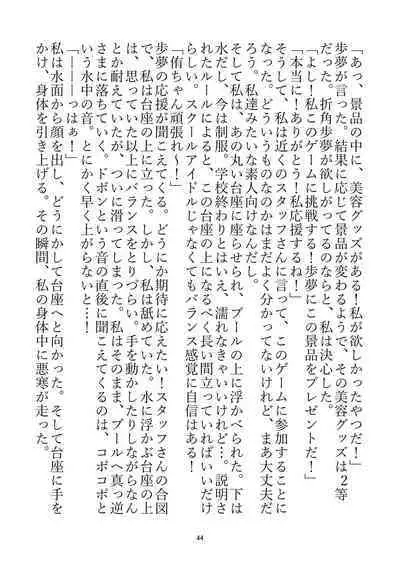 「あっ、景品の中に、美容グッズがある！私が欲しかったやつだ！」
歩夢が言った。結果に応じて景品が変わるようで、その美容グッズは２等
だった。折角歩夢が欲しがってるのならと、私は決心した。
「よし！私このゲームに挑戦する！歩夢にこの景品をプレゼントだ！」
「本当に！ありがとう！私応援するね！」
そうして、私は近くのスタッフさんに言って、このゲームに参加することに
なった。どういうものなのかはまだよく分かってないけれど、まあ大丈夫だ
ろう。私達みたいな素人向けなんだし。
そして私は、あの丸い台座に座らせられ、プールの上に浮かべられた。下は
水だし、今は制服。学校終わりとはいえ、濡れなきゃいいけれど…。説明さ
れたルールによると、この台座の上になるべく長い間立っていればいいだけ
らしい。スクールアイドルじゃなくてもバランス感覚に自信はある！
「侑ちゃん頑張れ〜！」
歩夢の応援が聞こえてくる。どうにか期待に応えたい！スタッフさんの合図
で、私は台座の上に立った。しかし、私は舐めていた。水に浮かぶ台座の上
は、思っていた以上にバランスをとりづらい。手を動かしたりしながらなん
とか耐えていたが、ついに滑ってしまった。私はそのまま、プールへ真っ逆
さまに落ちていく。ドボンという音の直後に聞こえてくるのは、コポコポと
いう水中の音。とにかく早く上がらないと…！
「ーーーーっはぁ！」
私は水面から顔を出し、どうにかして台座へと向かった。そして台座に手を
かけ、身体を引き上げる。その瞬間、私の身体中に悪寒が走った。
44